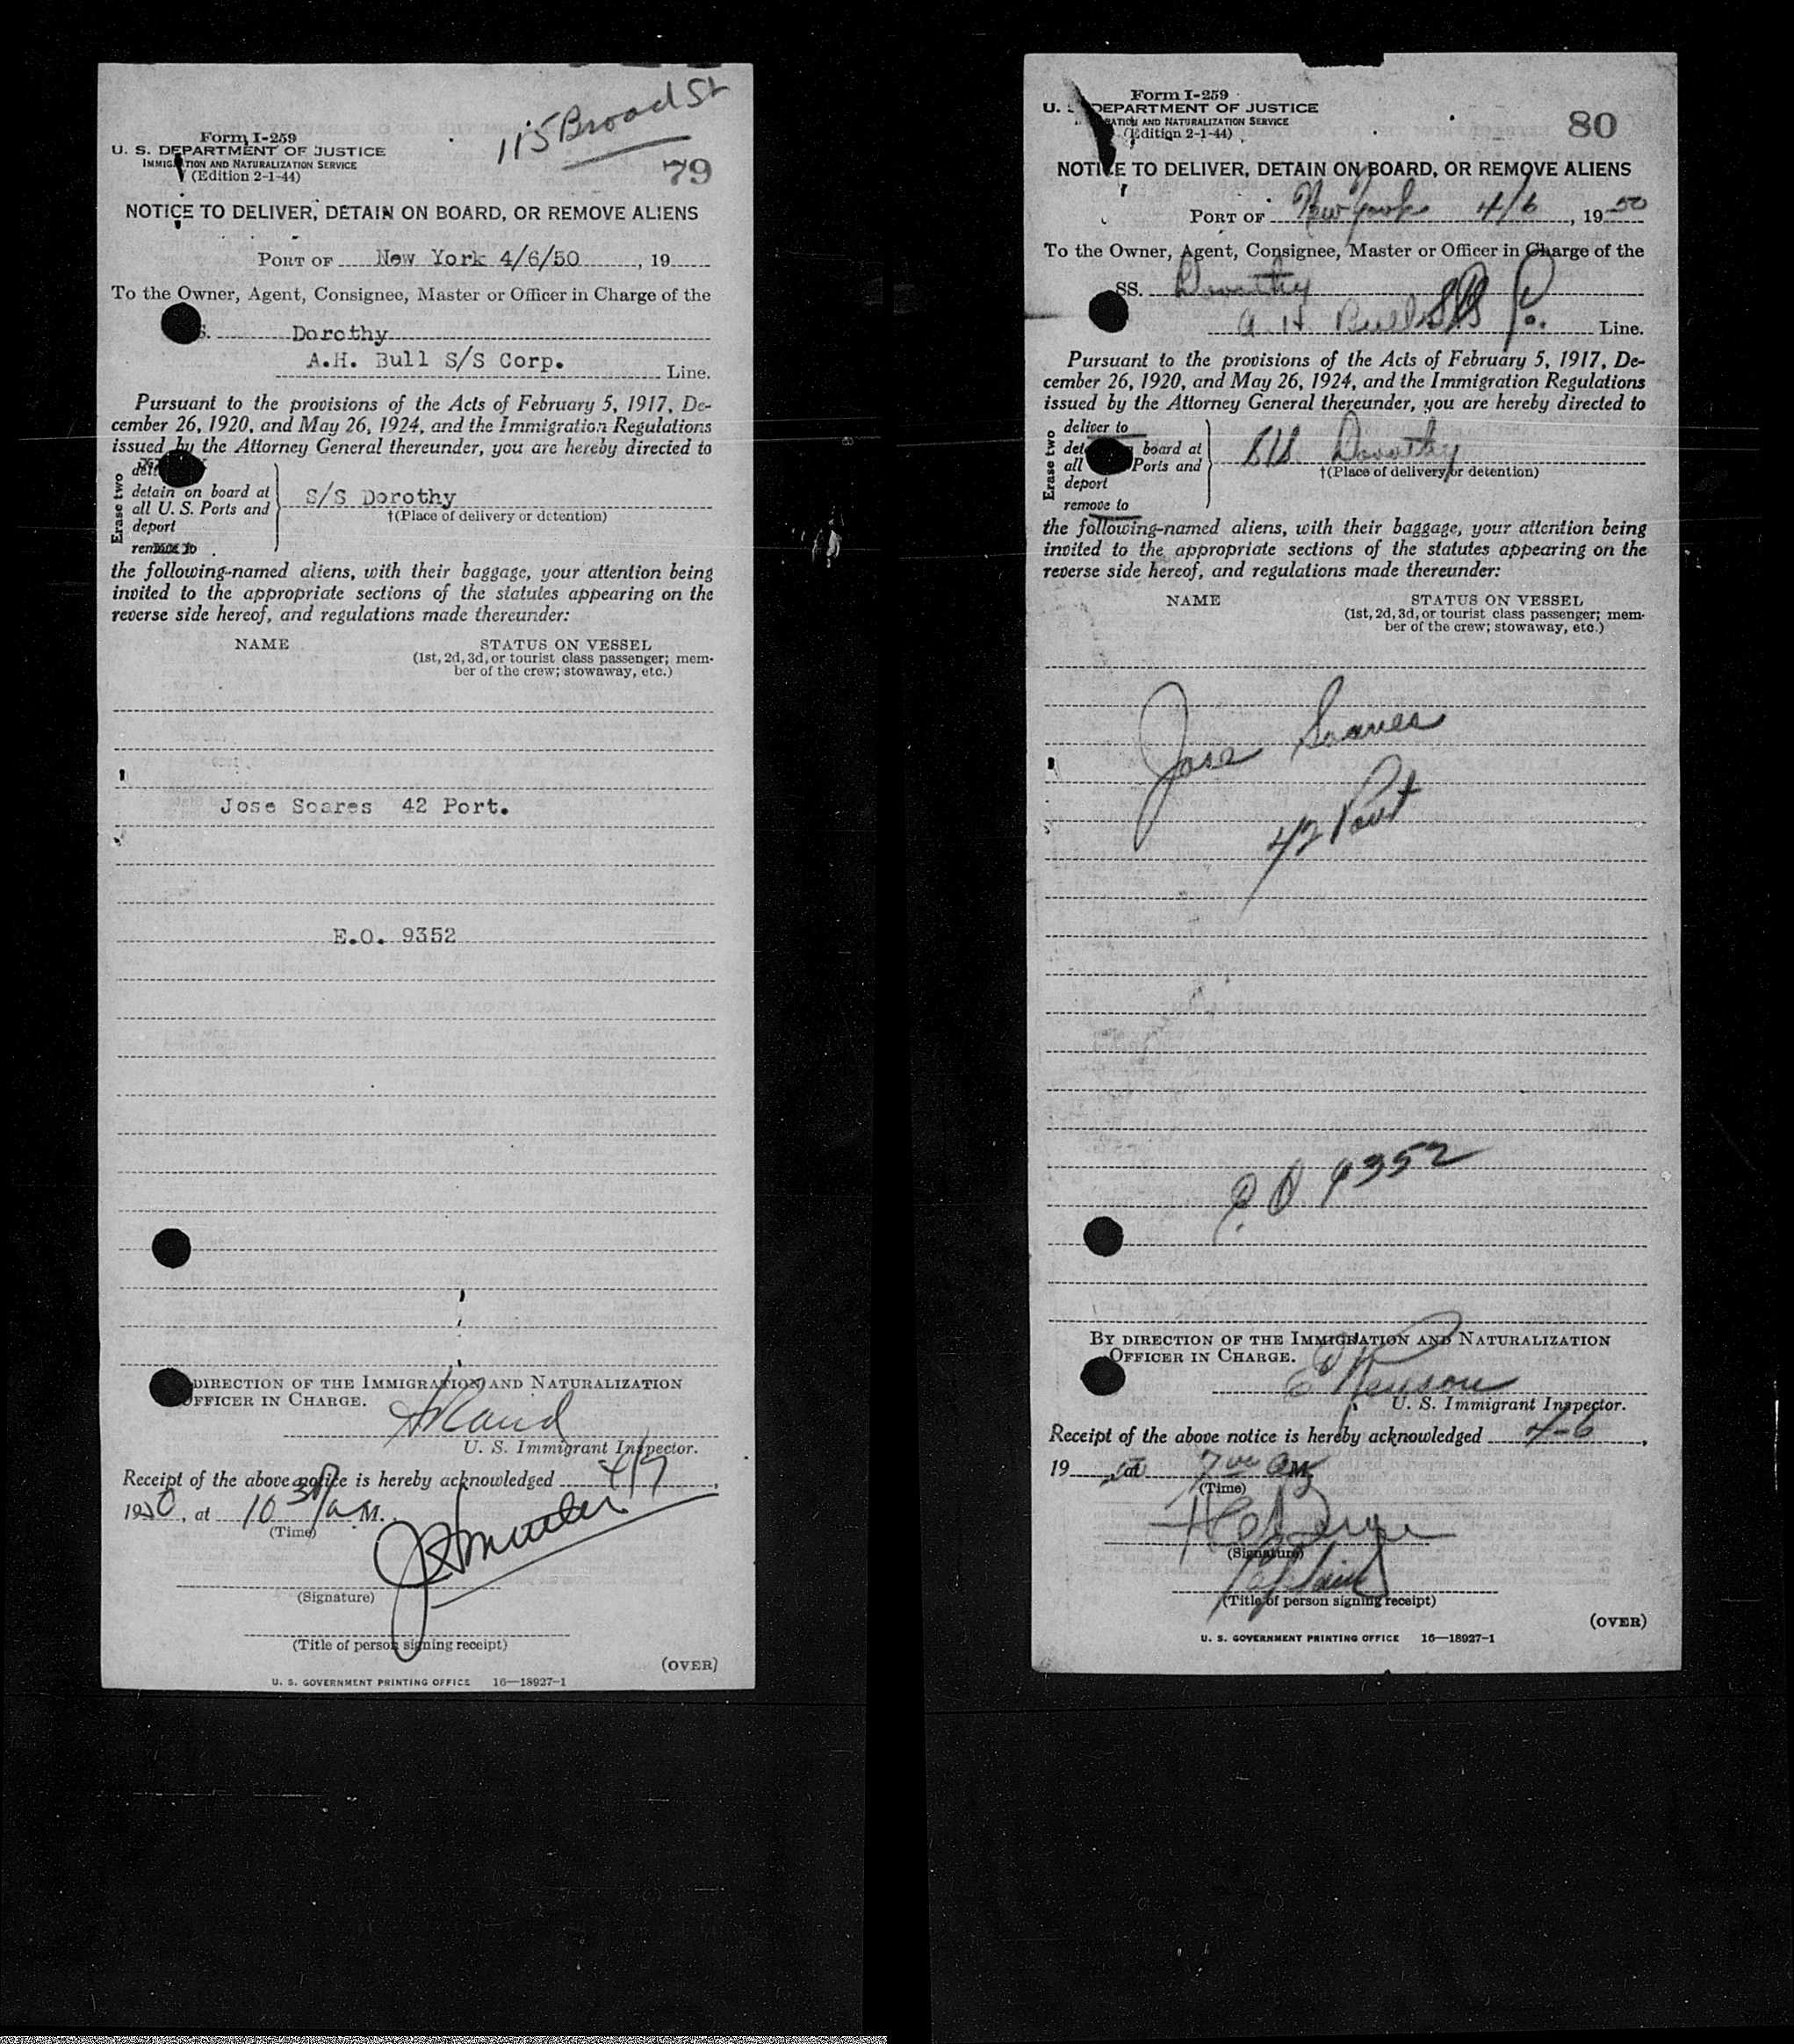 115 Broad St
Form I-259
U. S. DEPARTMENT OF JUSTICE
IMMIGRATION AND NATURALIZATION SERVICE
(Edition 2-1-44)
79
NOTICE TO DELIVER, DETAIN ON BOARD, OR REMOVE ALIENS
PORT OF New York 4/6/50, 19
To the Owner, Agent, Consignee, Master or Officer in Charge of the
S. Dorothy
A.H. Bull S/S Corp. Line.
Pursuant to the provisions of the Acts of February 5, 1917, De-
cember 26, 1920, and May 26, 1924, and the Immigration Regulations
issued by the Attorney General thereunder, you are hereby directed to
Erase two
detain on board at
all U. S. Ports and
deport
remove to
S/S Dorothy
†(Place of delivery or detention)
the following-named aliens, with their baggage, your attention being
invited to the appropriate sections of the statutes appearing on the
reverse side hereof, and regulations made thereunder:
NAME STATUS ON VESSEL
(1st, 2d, 3d, or tourist class passenger; mem-
ber of the crew; stowaway, etc.)
Jose Soares 42 Port.
E.O. 9352
DIRECTION OF THE IMMIGRATION AND NATURALIZATION
OFFICER IN CHARGE.
U. S. Immigrant Inspector.
Receipt of the above notice is hereby acknowledged 4/7,
1950, at 10 30 a M.
(Time)
(Signature)
(Title of person signing receipt)
(OVER)
U. S. GOVERNMENT PRINTING OFFICE 16—18927-1
Form I-259
U. S. DEPARTMENT OF JUSTICE
RATION AND NATURALIZATION SERVICE
(Edition 2-1-44)
80
NOTICE TO DELIVER, DETAIN ON BOARD, OR REMOVE ALIENS
PORT OF New York 4/6, 1950
To the Owner, Agent, Consignee, Master or Officer in Charge of the
SS. Dorothy
A H Bull SS Co. Line.
Pursuant to the provisions of the Acts of February 5, 1917, De-
cember 26, 1920, and May 26, 1924, and the Immigration Regulations
issued by the Attorney General thereunder, you are hereby directed to
Erase two
deliver to
det board at
all Ports and
deport
remove to
SS Dorothy
†(Place of delivery or detention)
the following-named aliens, with their baggage, your attention being
invited to the appropriate sections of the statutes appearing on the
reverse side hereof, and regulations made thereunder:
NAME STATUS ON VESSEL
(1st, 2d, 3d, or tourist class passenger; mem-
ber of the crew; stowaway, etc.)
Jose Soares
42 Port
E.O 9352
BY DIRECTION OF THE IMMIGRATION AND NATURALIZATION
OFFICER IN CHARGE.
U. S. Immigrant Inspector.
Receipt of the above notice is hereby acknowledged 4-6,
19 50, at 7 00 a M.
(Time)
(Signature)
Captain
(Title of person signing receipt)
(OVER)
U. S. GOVERNMENT PRINTING OFFICE 16—18927-1